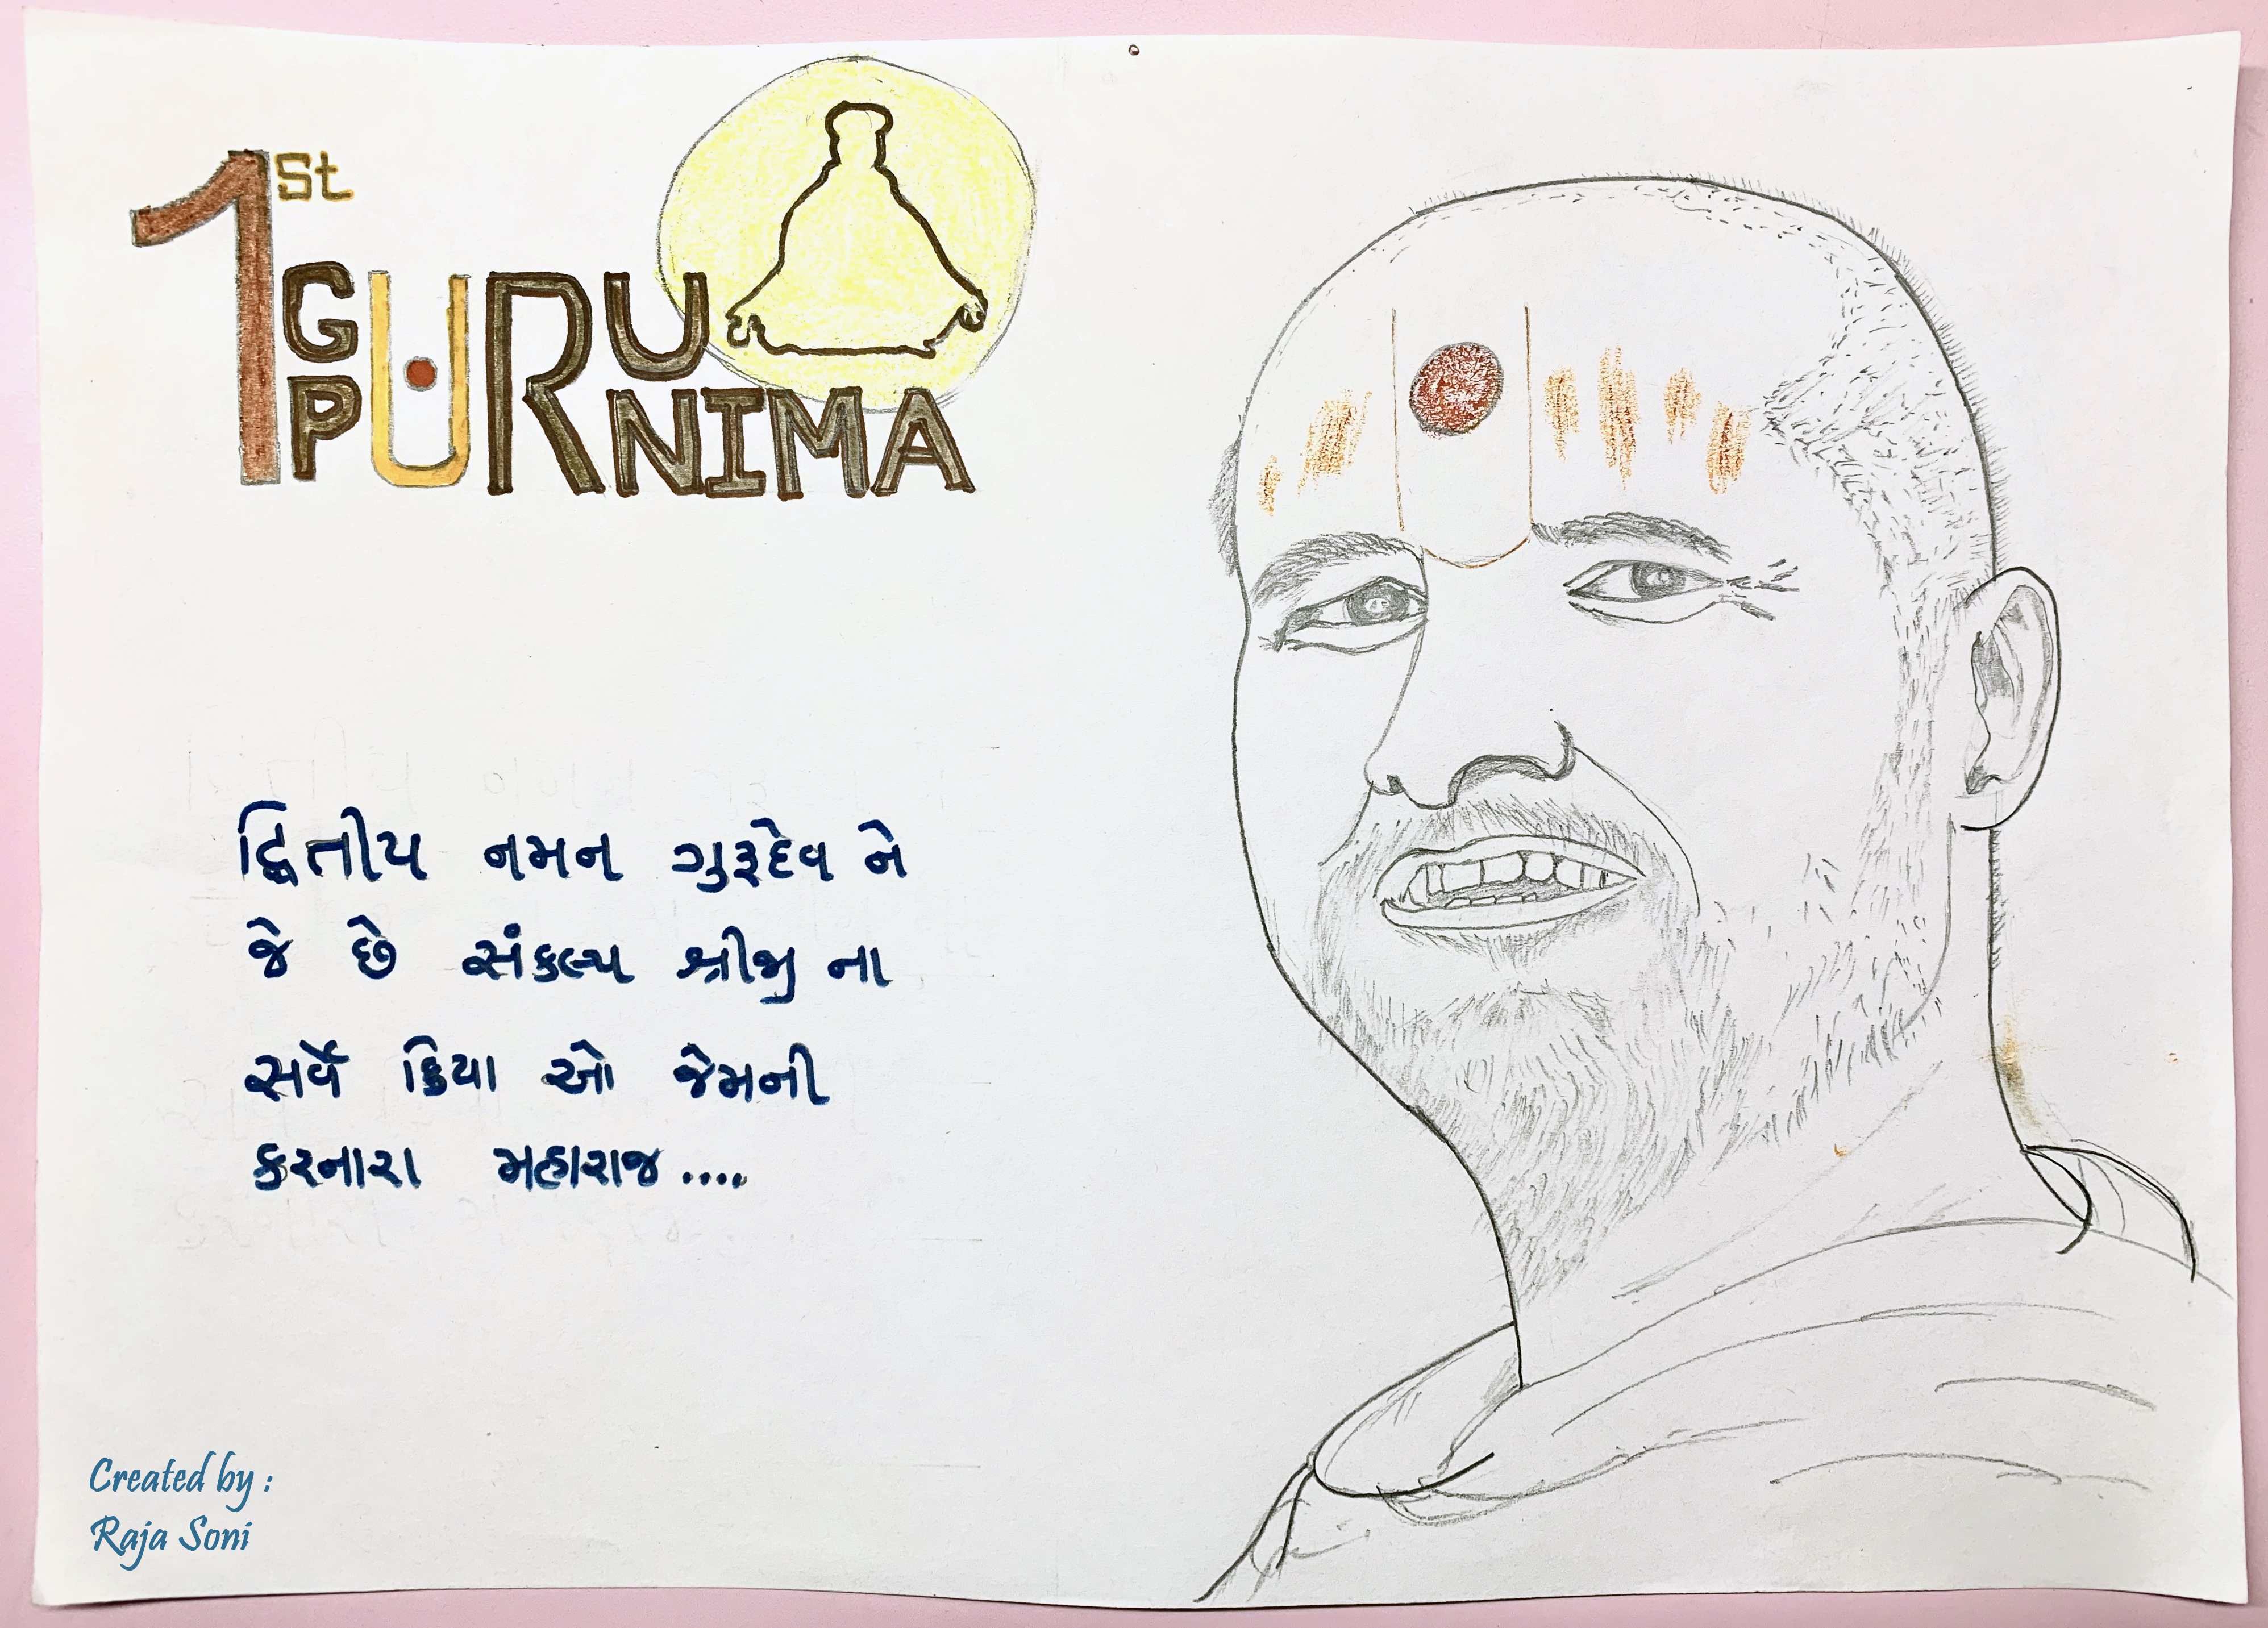 1st
GURU
PURNIMA
દ્વિતીય નમન ગુરૂદેવ ને
જે છે સંકલ્પ શ્રીજી ના
સર્વે ક્રિયા ઓ જેમની
કરનારા મહારાજ....
Created by :
Raja Soni